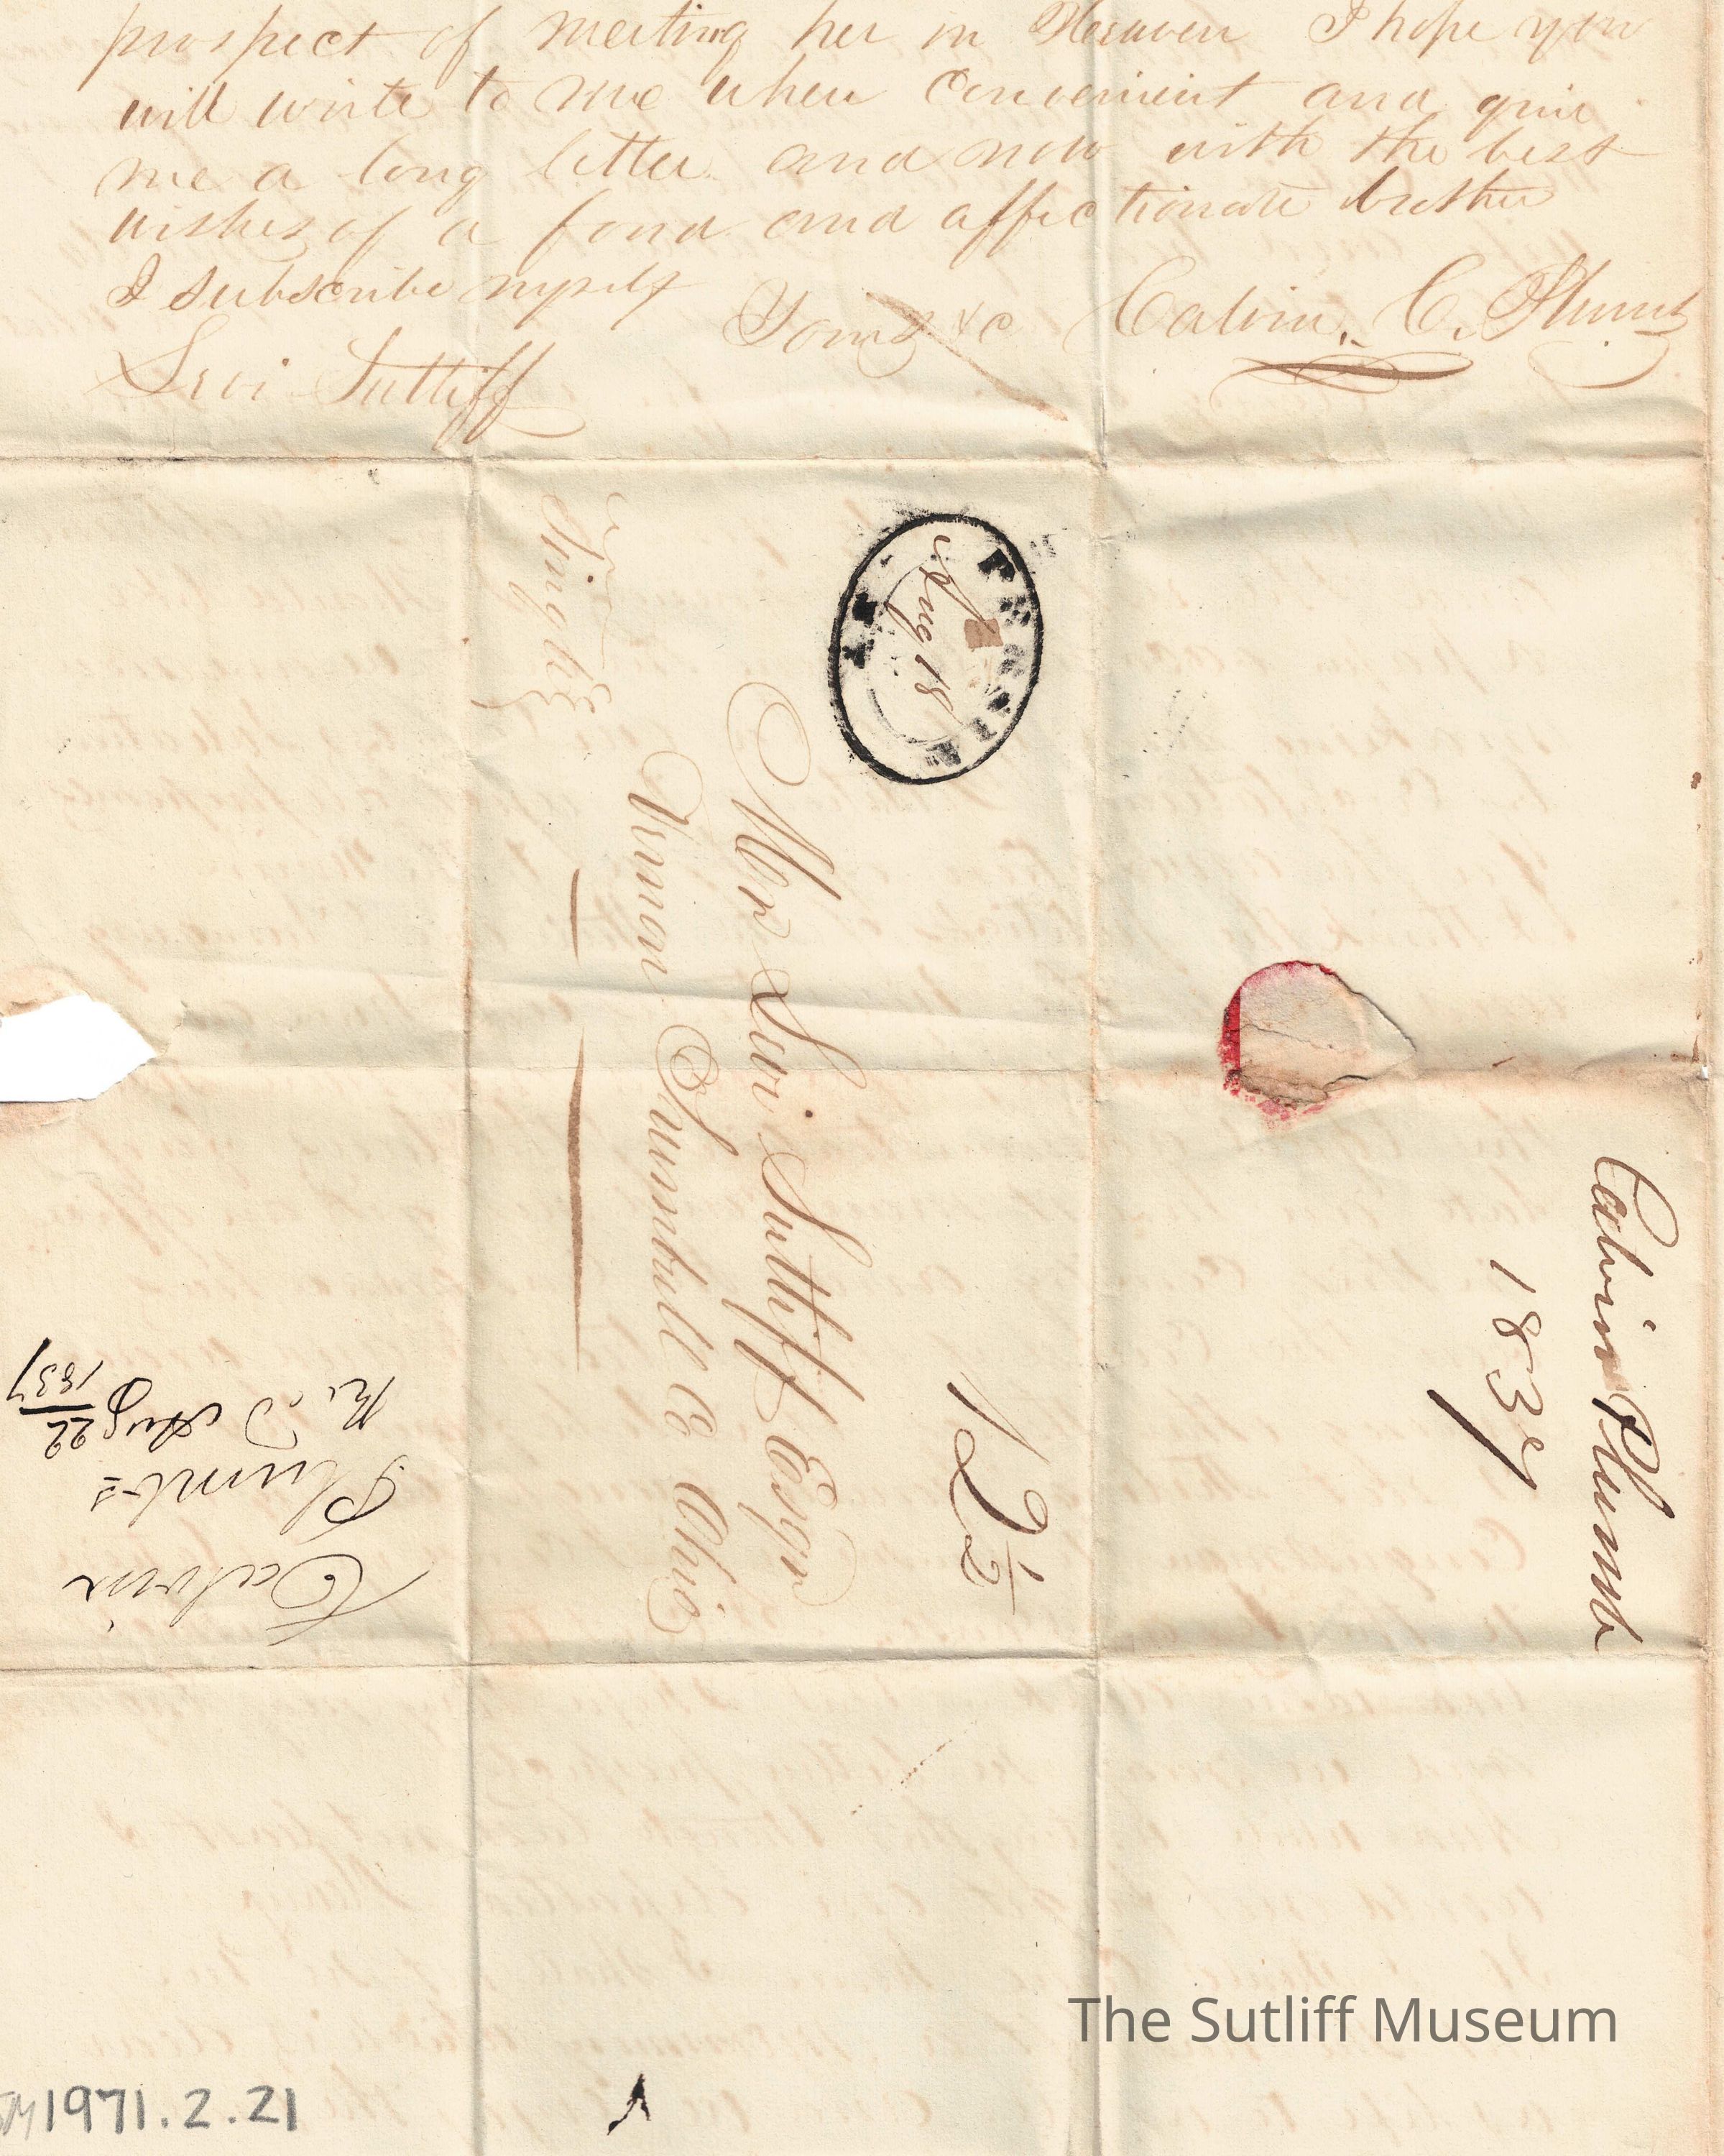 prospect of meeting her in Heaven I hope you
will write to me when convenient and give
me a long letter. and now with the best
wishes of a fond and affectionate brother
I subscribe myself
Yours &c Calvin. C. Plumb
Levi Sutliff
Single
Aug 18
Mr Levi Sutliff Esqr
Vernon Trumbull Co Ohio
12 1/2
Calvin Plumb
1837
Calvin
Plumb=
Aug 22
1837
The Sutliff Museum
1971.2.21